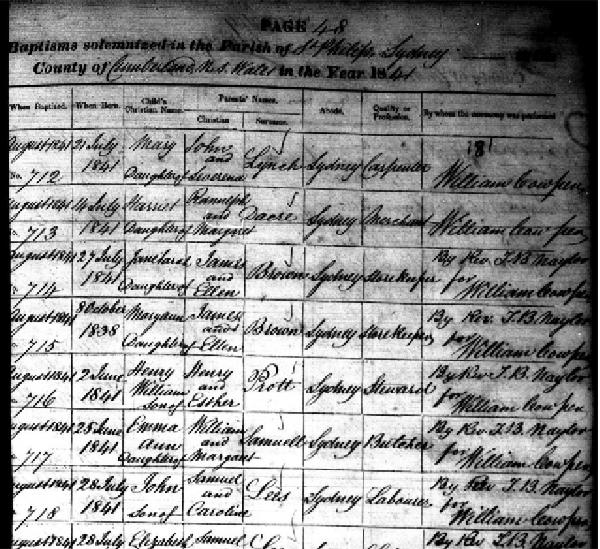 PAGE 48
Baptisms solemnized in the Parish of St Philip's Sydney
County of Cumberland N.S. Wales in the Year 1841
When Baptized. When Born. Child's Christian Name. Parents' Names. Christian Surname. Abode. Quality or Profession. By whom the ceremony was performed
August 1841 21 July 1841 Mary Daughter of John and Lynch Sydney Carpenter William Cowper
No. 712
August 1841 14 July 1841 Harriet Daughter of Randolph and Margaret Dacre Sydney Merchant William Cowper
713
August 1841 27 July 1841 Daughter of James and Ellen Brown Sydney Storekeeper By Rev. T.B. Naylor for William Cowper
714
August 1841 30 October 1838 Maryann Daughter of James and Ellen Brown Sydney Storekeeper By Rev. T.B. Naylor for William Cowper
715
August 1841 2 June 1841 Henry William Son of Henry and Esther Sydney Steward By Rev T.B. Naylor for William Cowper
716
August 1841 25 June 1841 Emma Ann Daughter of William and Margaret Samuell Sydney Butcher By Rev T.B. Naylor for William Cowper
717
August 1841 28 July 1841 John Son of Samuel and Caroline Lees Sydney Labourer By Rev T.B. Naylor for William Cowper
718
August 1841 28 July Elizabeth Samuel By Rev. T.B. Naylor